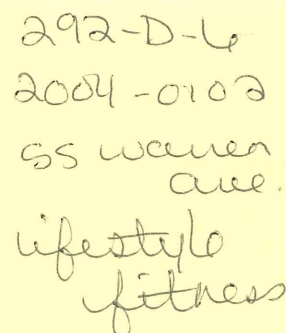 292-D-6
2004-0102
55 warren
ave.
lifestyle
fitness